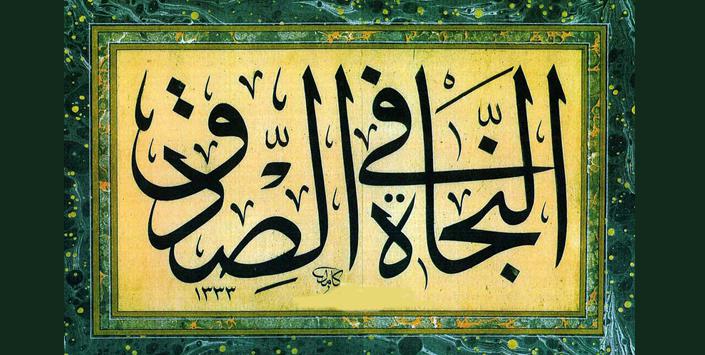 النَّجَاةُ فِي الصِّدْقِ
كامل
١٣٣٣